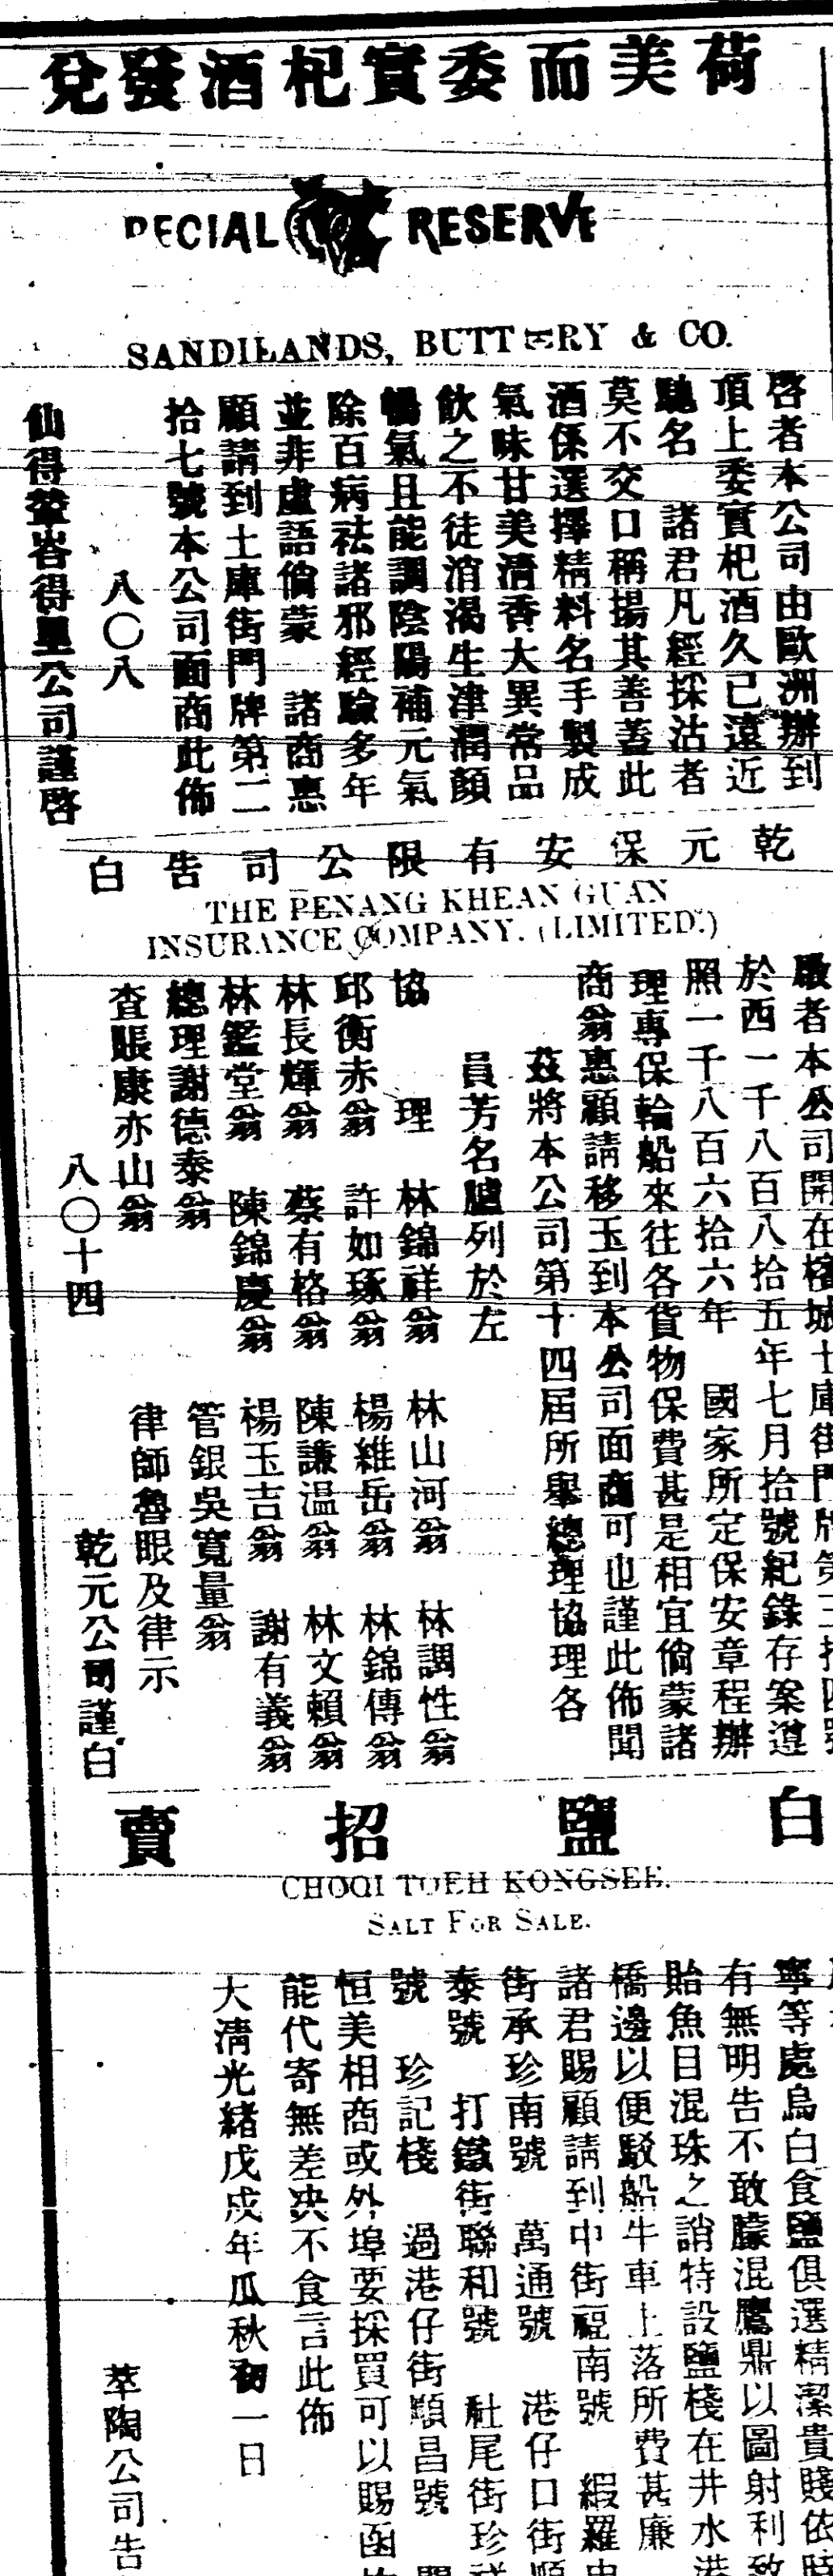 荷美而委實杞酒發兌
PECIAL RESERVE
SANDILANDS, BUTTERY & CO.
啓者本公司由歐洲辦到
頂上委實杞酒久已遠近
馳名 諸君凡經採沽者
莫不交口稱揚其善蓋此
酒係選擇精料名手製成
氣味甘美清香大異常品
飲之不徒消渴生津潤顏
暢氣且能調陰陽補元氣
除百病祛諸邪經驗多年
並非虛語倘蒙 諸商惠
顧請到土庫街門牌第二
拾七號本公司面商此佈
八〇八
仙得輦峇得里公司謹啓
乾元保安有限公司告白
THE PENANG KHEAN GUAN
INSURANCE COMPANY. (LIMITED.)
啟者本公司開在檳城土庫街門牌第三拾四號
於西一千八百八拾五年七月拾號紀錄存案遵
照一千八百六拾六年 國家所定保安章程辦
理專保輪船來往各貨物保費甚是相宜倘蒙諸
商翁惠顧請移玉到本公司面商可也謹此佈聞
茲將本公司第十四屆所舉總理協理各
員芳名臚列於左
協理 林錦祥翁 林山河翁 林調性翁
邱衡赤翁 許如琢翁 楊維岳翁 林錦傳翁
林長輝翁 蔡有格翁 陳謙温翁 林文賴翁
林鑑堂翁 陳錦慶翁 楊玉吉翁 謝有義翁
總理謝德泰翁 管銀吳寬量翁
查賬康亦山翁 律師魯眼及律示
八〇十四 乾元公司謹白
白鹽招賣
CHOOI TOEH KONGSEE.
SALT FOR SALE.
寧等處烏白食鹽俱選精潔貴賤依時
有無明告不敢朦混鷹鼎以圖射利致
貽魚目混珠之誚特設鹽棧在井水港
橋邊以便駁船牛車上落所費甚廉
諸君賜顧請到中街福南號 緞羅申
街承珍南號 萬通號 港仔口街順
泰號 打鐵街聯和號 社尾街珍祥
號 珍記棧 過港仔街順昌號
恒美相商或外埠要採買可以賜函
能代寄無差决不食言此佈
大清光緒戊戌年瓜秋初一日
萃陶公司告